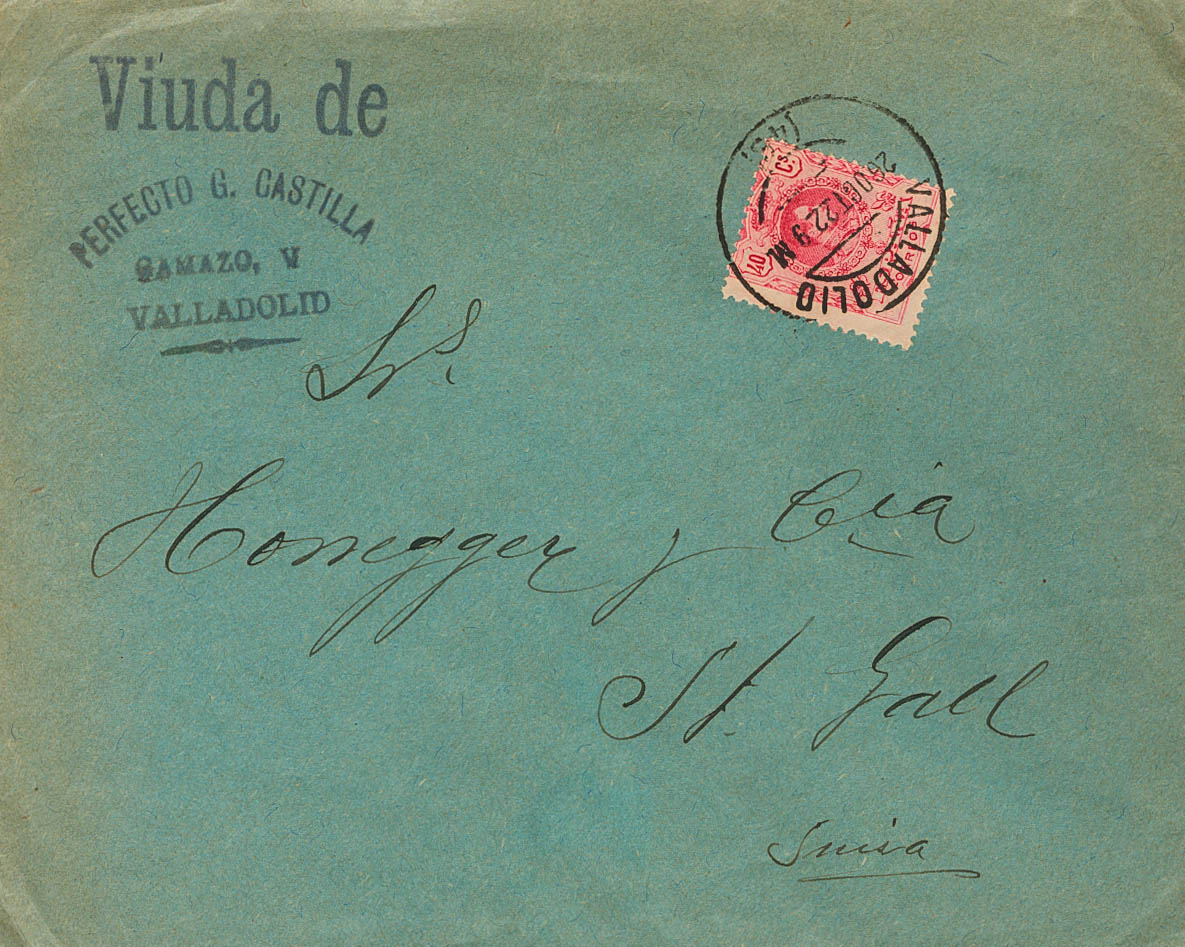 Viuda de
PERFECTO G. CASTILLA
GAMAZO, V
VALLADOLID
VALLADOLID
26 OCT 22 9 M
(4S)
40 Cs
Srs.
Honegger y Cia
St. Gall
Suisa